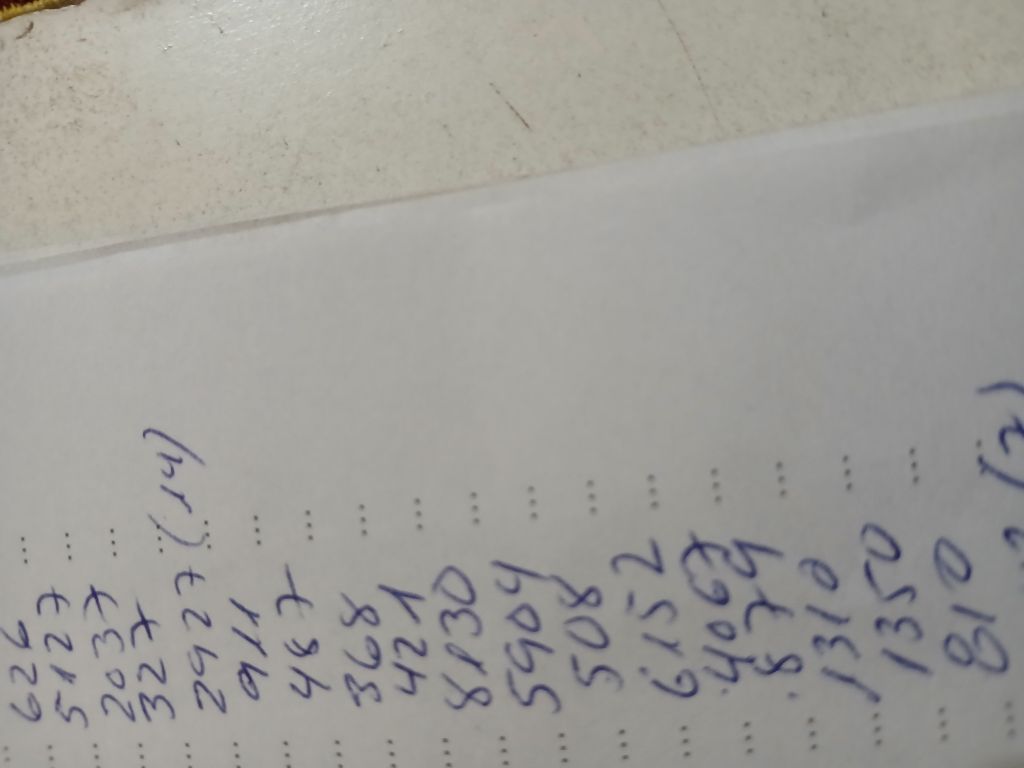 626
5127
2037
327
2927 (14)
911
487
368
421
8130
5904
508
6152
4067
8749
1310
1350
810